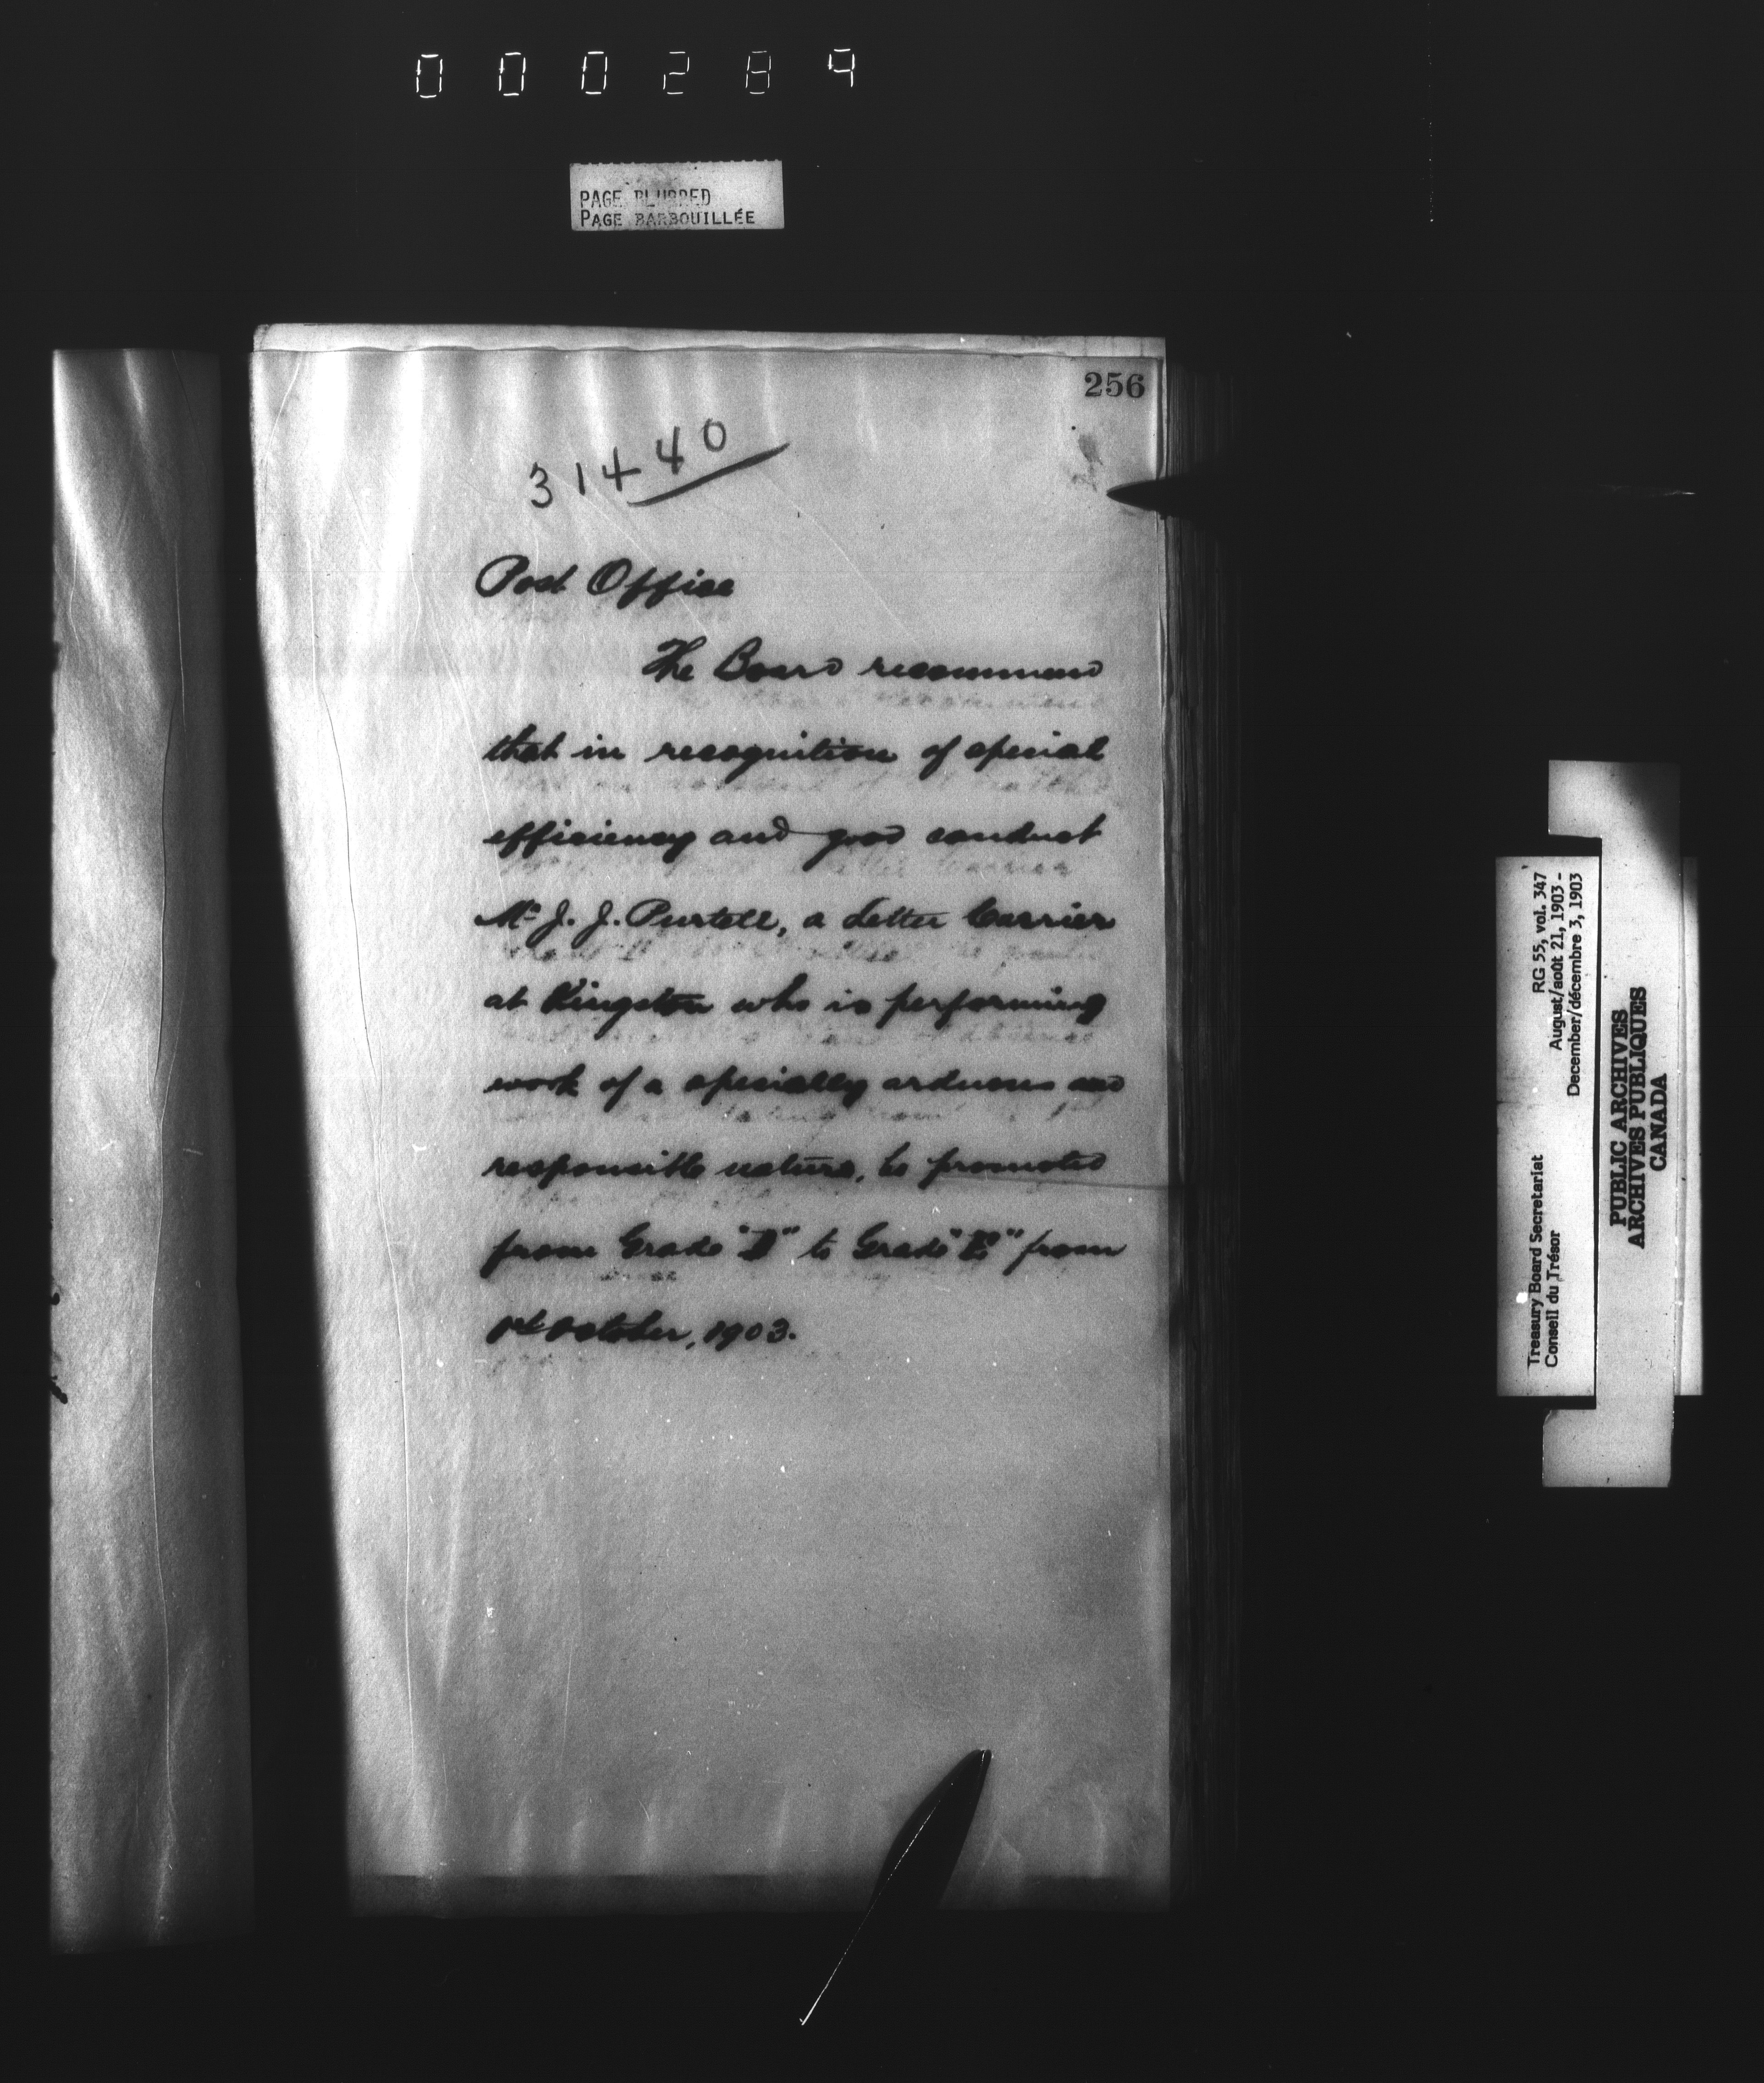 000289
PAGE BLURRED
PAGE BARBOUILLÉE
256
31440
Post Office
The Board recommend
that in recognition of special
efficiency and good conduct
Mr J. J. Purtell, a Letter Carrier
at Kingston who is performing
work of a specially arduous and
responsible nature, be promoted
from Grade "D" to Grade "E" from
1st October, 1903.
Treasury Board Secretariat RG 55, vol. 347
Conseil du Trésor August/août 21, 1903 -
December/décembre 3, 1903
PUBLIC ARCHIVES
ARCHIVES PUBLIQUES
CANADA